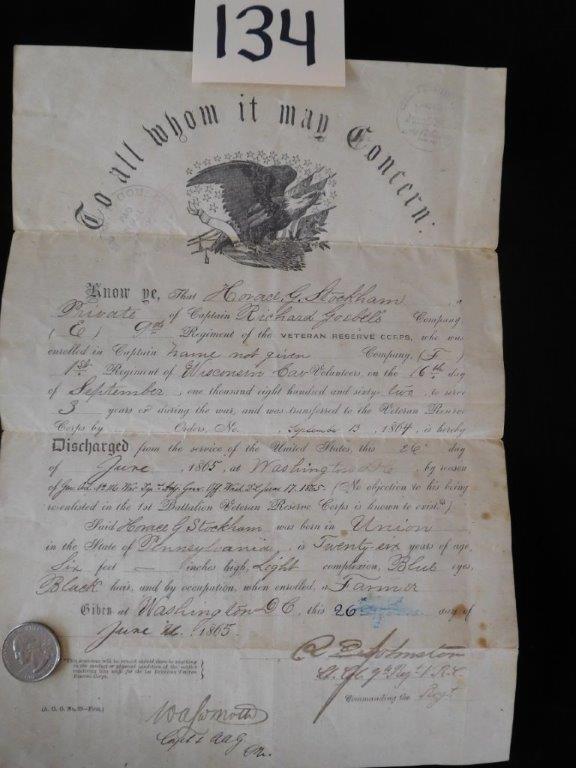 134
To all whom it may Concern:
Know ye, That Horace G. Stockham, a
Private of Captain Richard Goebels Company
(E) 9th Regiment of the VETERAN RESERVE CORPS, who was
enrolled in Captain name not given Company, (F)
1st Regiment of Wisconsin Cav Volunteers, on the 16th day
of September, one thousand eight hundred and sixty two, to serve
3 years or during the war, and was transferred to the Veteran Reserve
Corps by Orders, No. September 13, 1864, is hereby
Discharged from the service of the United States, this 26 day
of June, 1865, at Washington DC, by reason
of June 17, 1865. (No objection to his being
reenlisted in the 1st Battalion Veteran Reserve Corps is known to exist.)
Said Horace G Stockham was born in Union
in the State of Pennsylvania, is Twenty six years of age,
Six feet inches high, Light complexion, Blue eyes,
Black hair, and by occupation, when enrolled, a Farmer
Given at Washington DC, this 26 day of
June 1865.
R E Johnston
Lt. Col 9th Regt V.R.C.
Commanding the Regt
(A. G. O. No.
Capt & AAG